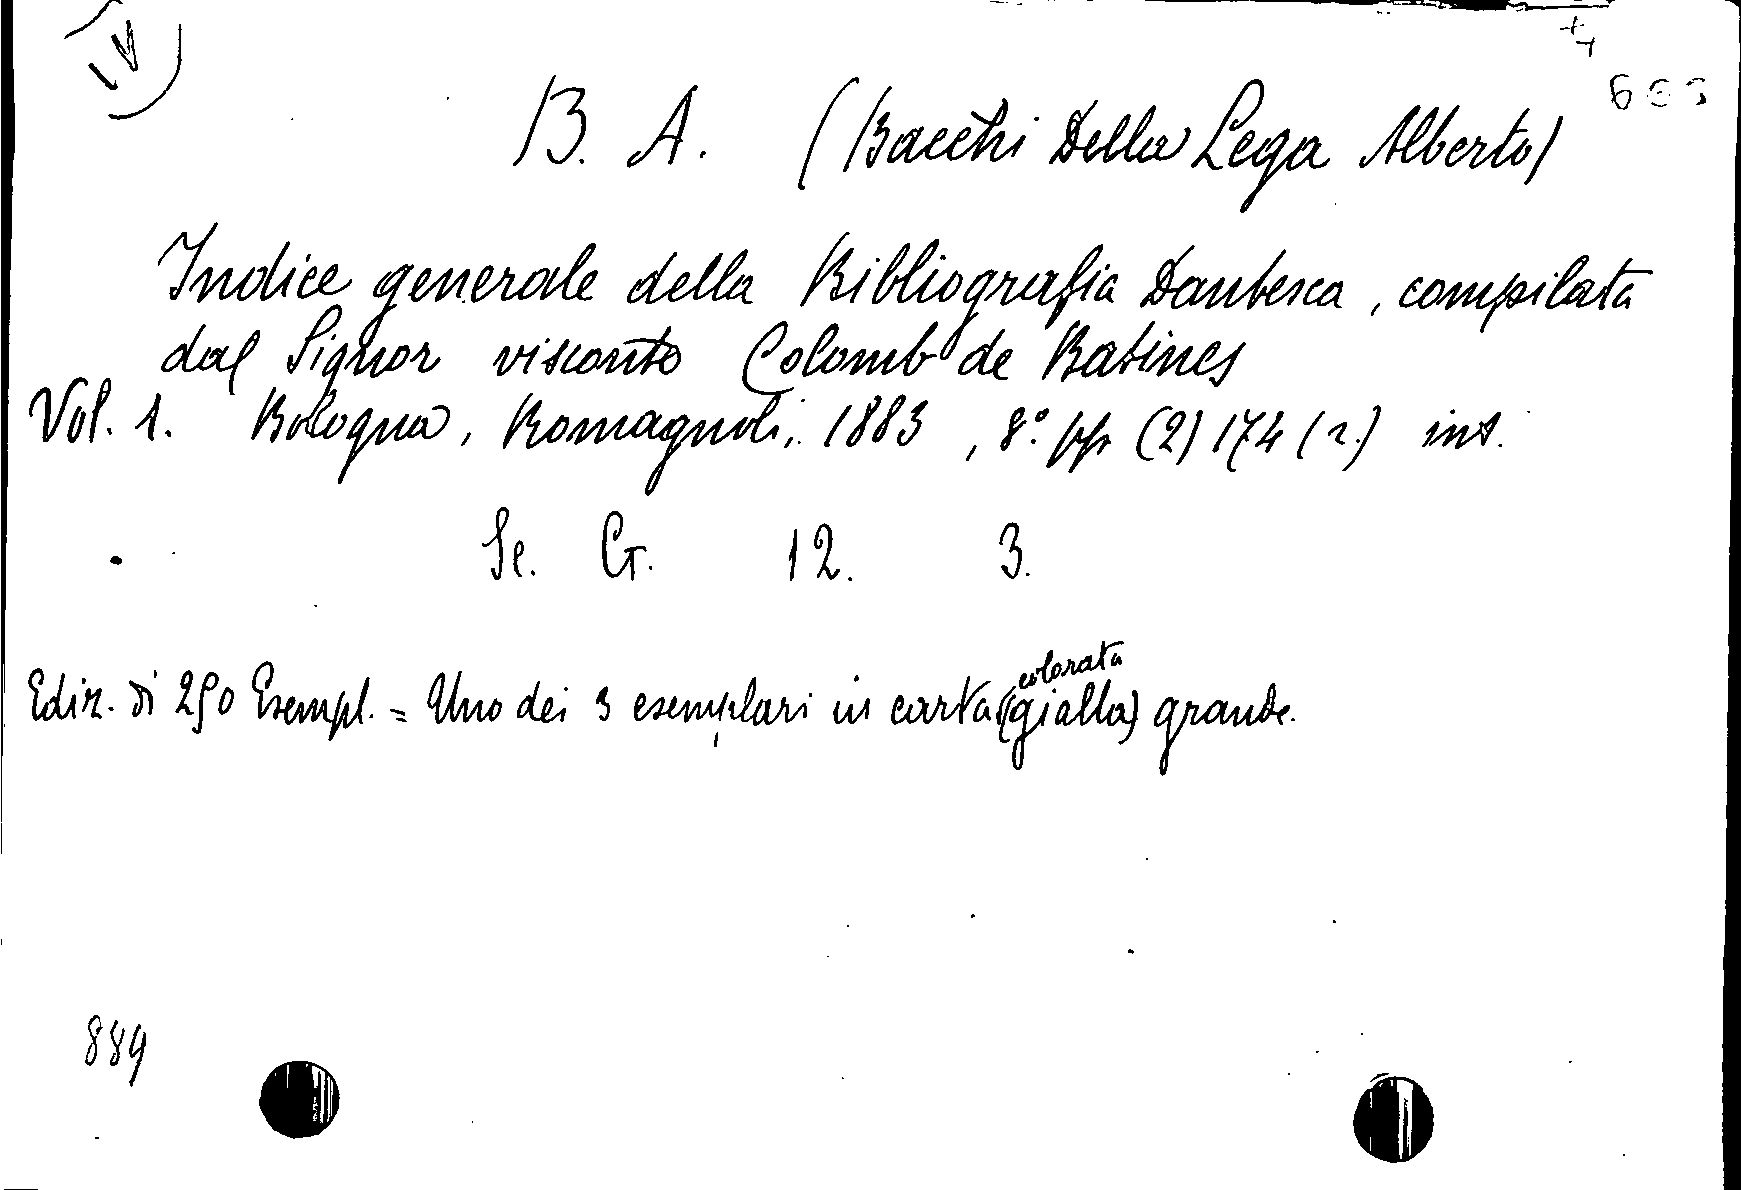 B. A. (Bacchi Della Lega Alberto)
Indice generale della Bibliografia Dantesca, compilata
dal Signor visconte Colomb de Batines
Vol. 1. Bologna, Romagnoli, 1883, 8.º pp (2) 174 (2.) int.
Se. G. 12. 3.
colorata
Ediz. di 250 Esempl. = Uno dei 3 esemplari in carta (gialla) grande.
889